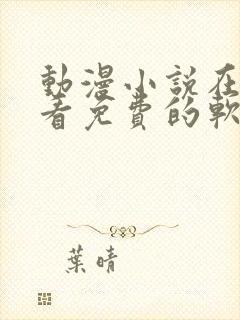 動漫小説在
看免費的軟
葉晴